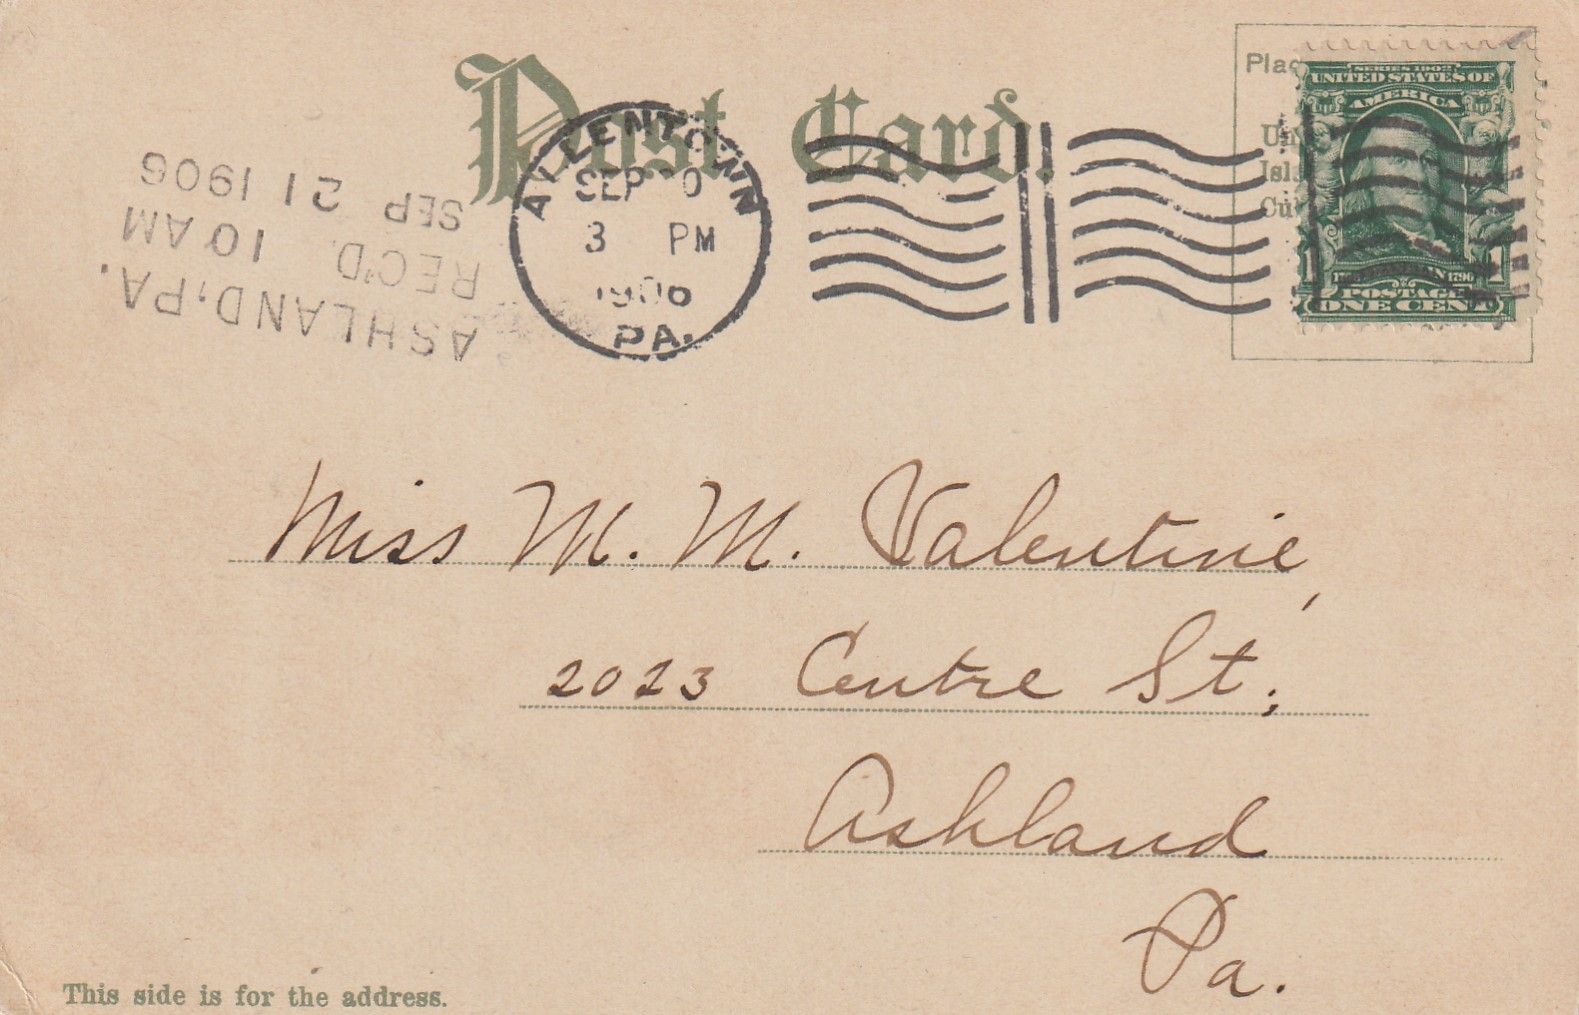 Post Card.
Plac
Un
Isl
Cu
SERIES 1902
UNITED STATES OF
AMERICA
1790
POSTAGE
ONE CENT
ALLENTOWN
SEP 0
3 PM
1906
PA.
ASHLAND, PA.
REC'D. 10 AM
SEP 21 1906
Miss M. M. Valentine,
2023 Centre St.,
Ashland
Pa.
This side is for the address.